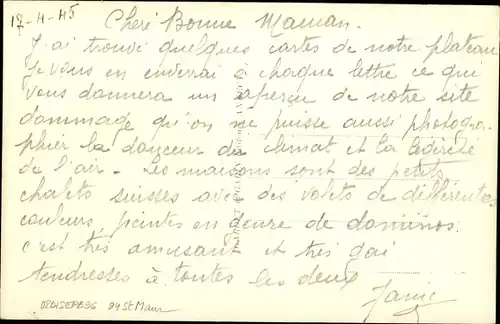 17-4-45 Cheri Bonne Maman.
J'ai trouvé quelques cartes de notre plateau
Je vous en enverrai à chaque lettre ce qui
vous donnera un aperçu de notre site
dommage qu'on ne puisse aussi photogra-
phier la douceur du climat et la
de l'air - Les maisons sont des petits
chalets suisses avec des volets de différentes
couleurs, peintes en genre de dominos.
c'est très amusant et très gai
tendresses à toutes les deux
Janie
94 St Maur